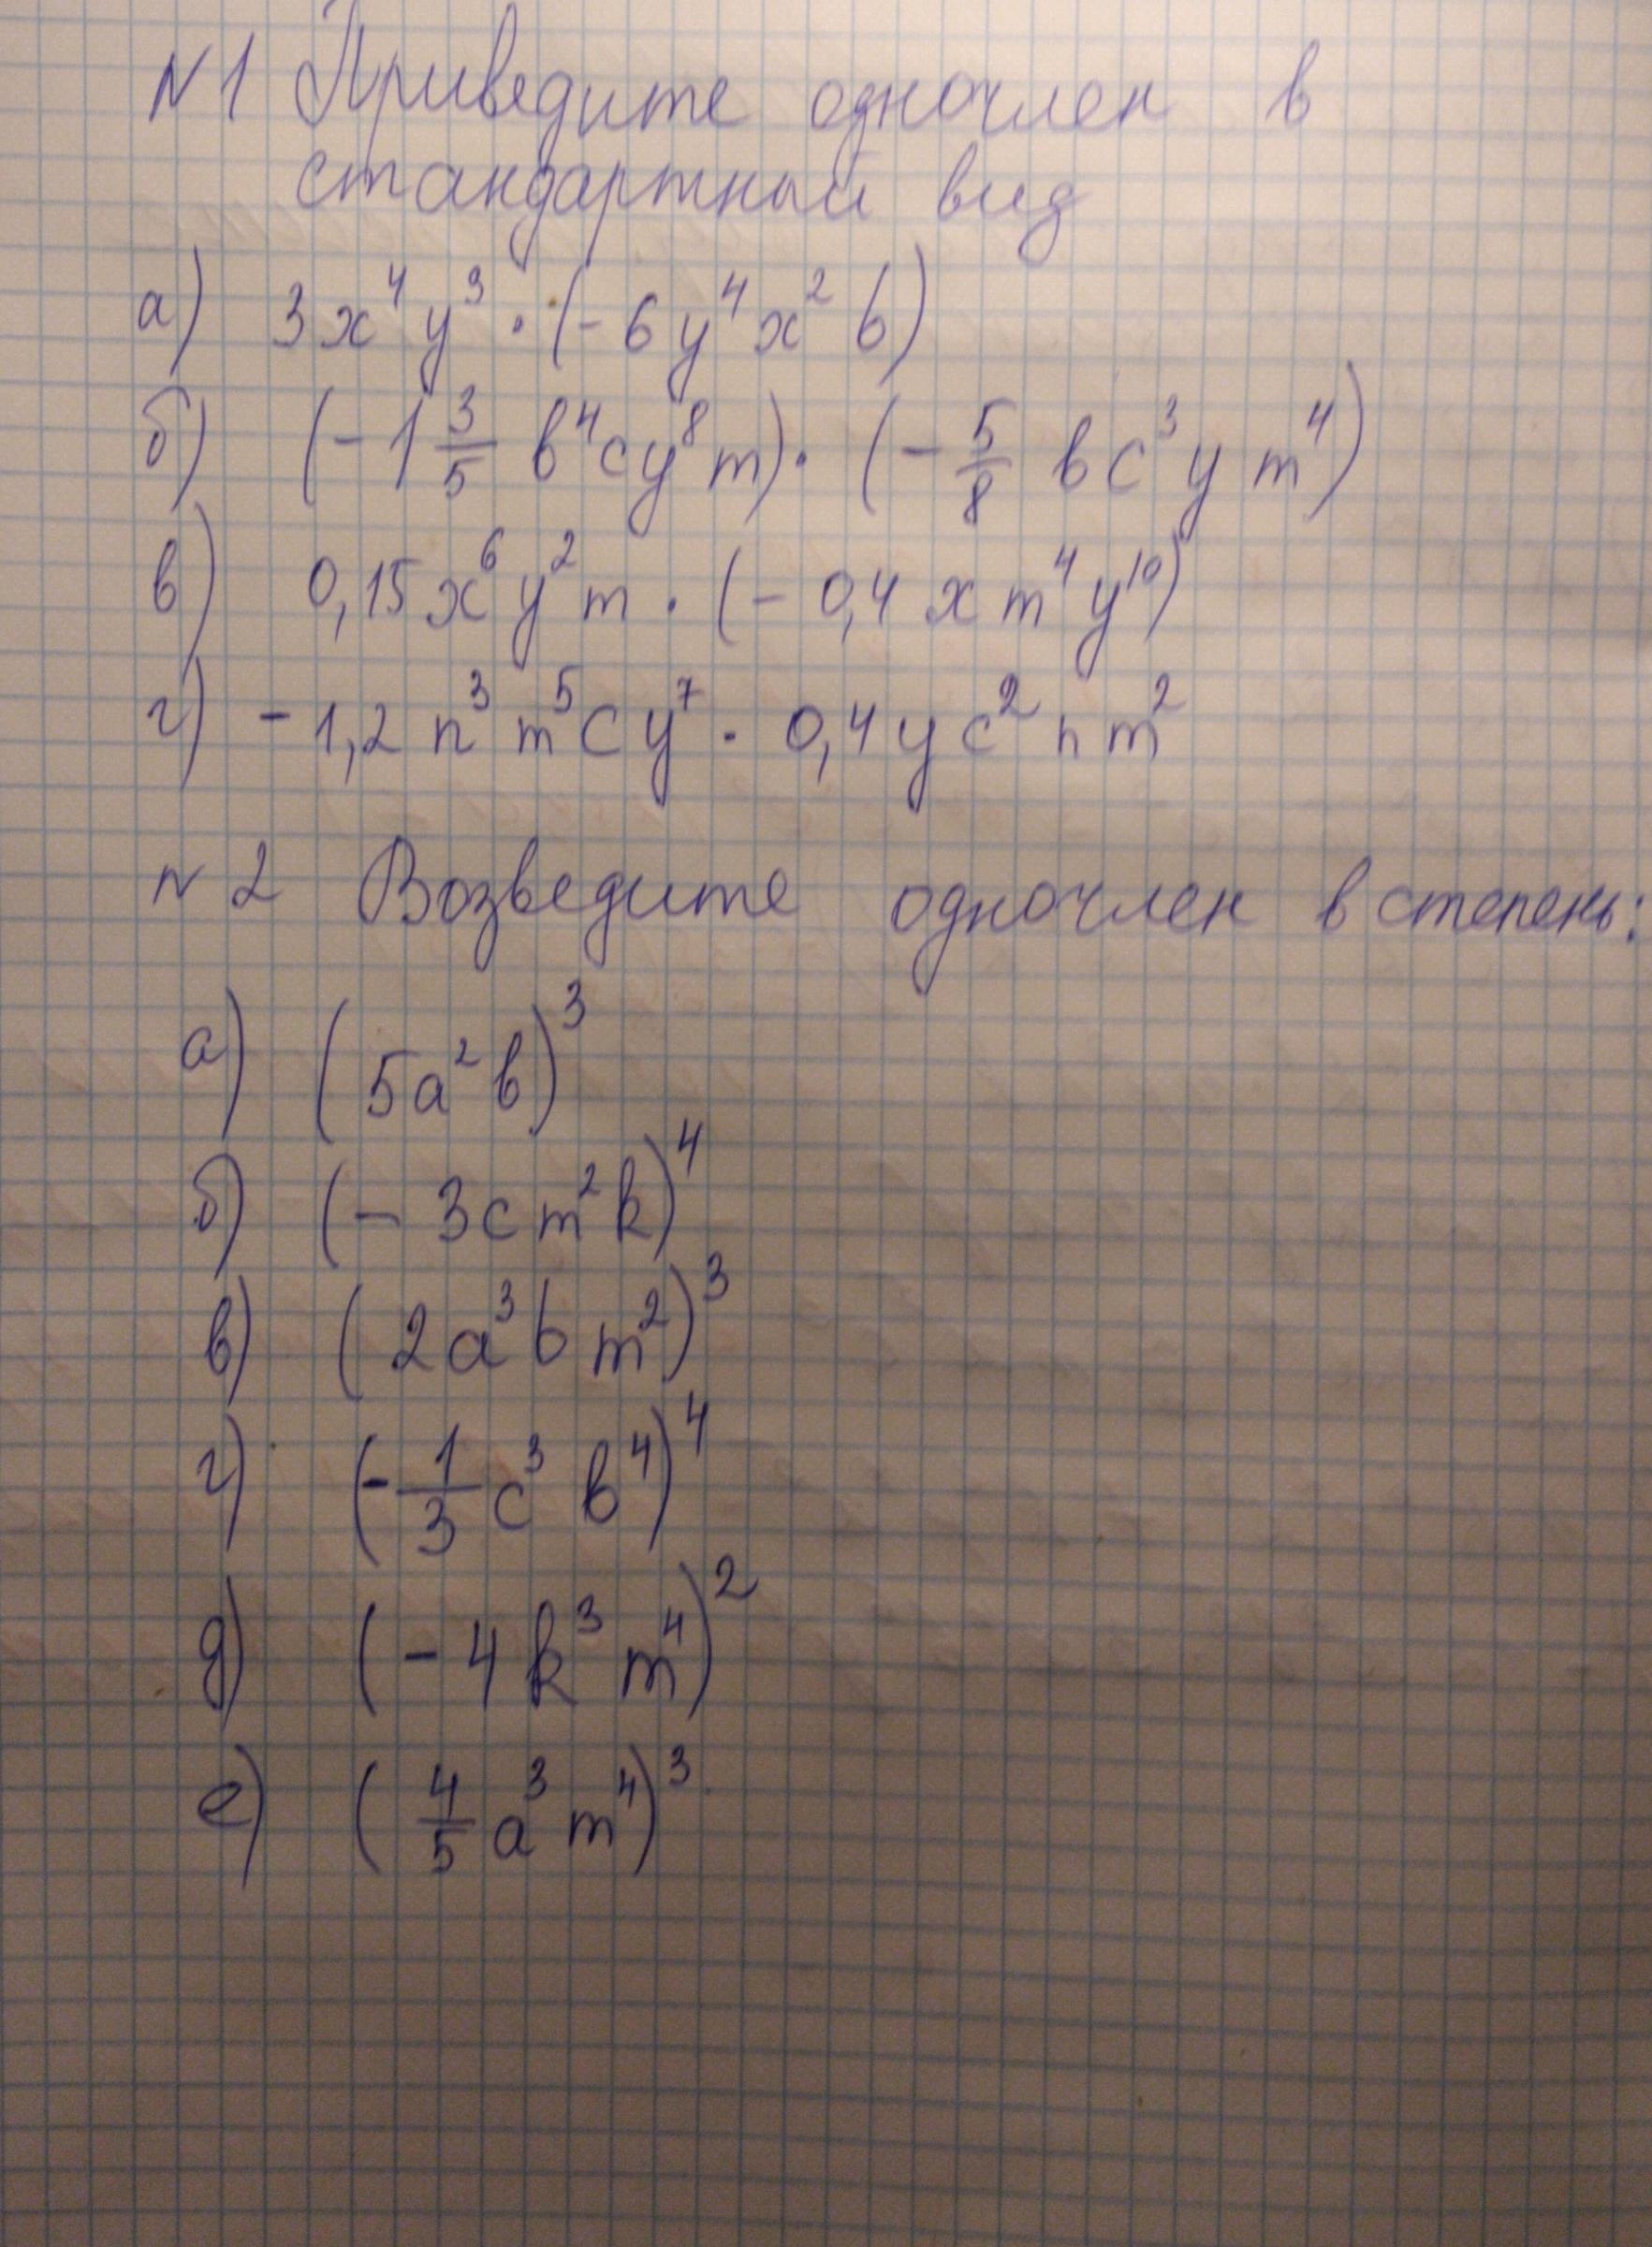 N1 Приведите одночлен в
стандартный вид
а) 3x⁴y³ · (-6y⁴x²b)
б) (-1 3/5 b⁴cy⁸m) · (- 5/8 bc³ym⁴)
в) 0,15x⁶y²m · (-0,4xm⁴y¹⁰)
г) -1,2n³m⁵cy⁷ · 0,4yc²nm²
N2 Возведите одночлен в степень:
а) (5a²b)³
б) (-3cm²k)⁴
в) (2a³bm²)³
г) (- 1/3 c³b⁴)⁴
д) (-4k³m⁴)²
е) (4/5 a³m⁴)³